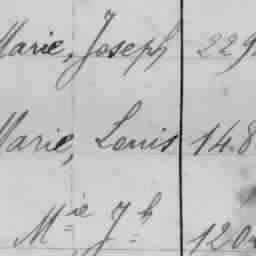 Marie, Joseph 229
Marie, Louis 14.8
M.ie J.h 120